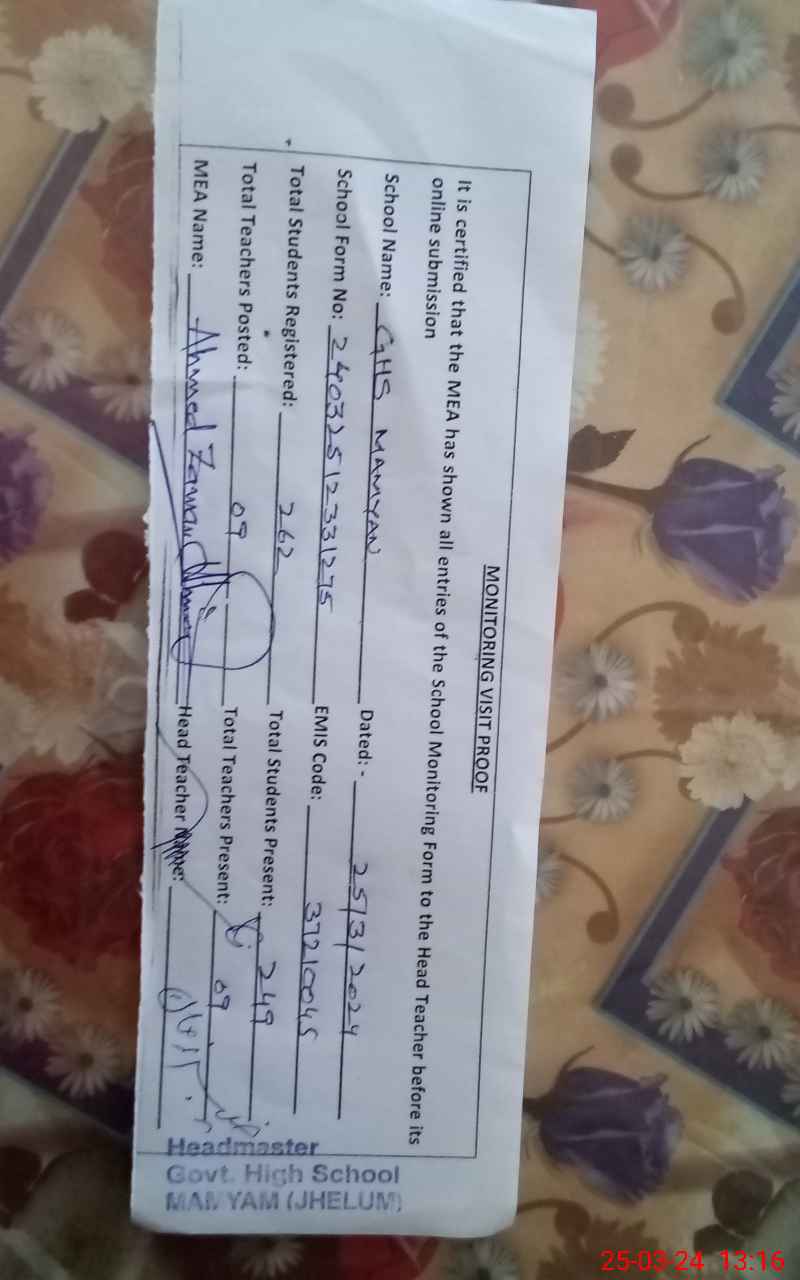 MONITORING VISIT PROOF
It is certified that the MEA has shown all entries of the School Monitoring Form to the Head Teacher before its
online submission
School Name: GHS MAMYAN Dated: - 25/3/2024
School Form No: 24032512331275 EMIS Code: 37210045
Total Students Registered: 262 Total Students Present: 249
Total Teachers Posted: 09 Total Teachers Present: 09
MEA Name: Ahmed Zaman Head Teacher Name:
Headmaster
Govt. High School
MAMYAM (JHELUM)
25-03-24 13:16